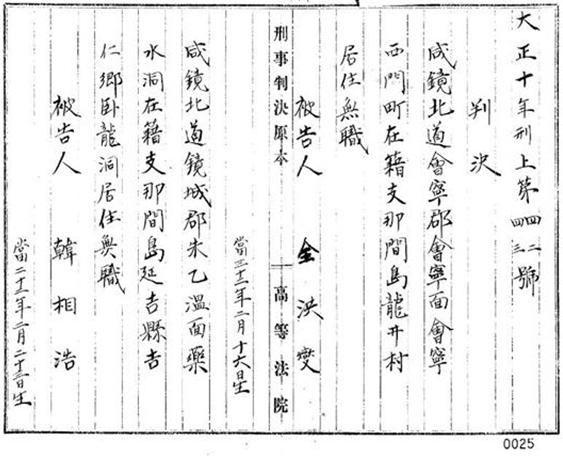 大正十年刑上第四二四三號
判決
咸鏡北道會寧郡會寧面會寧
西門町在籍支那間島龍井村
居住無職
被告人 金洪燮
當三十二年二月十六日生
刑事判決原本 高等法院
咸鏡北道鏡城郡朱乙溫面藥
水洞在籍支那間島延吉縣吉
仁鄉卧龍洞居住無職
被告人 韓相浩
當二十三年二月二十三日生
0025